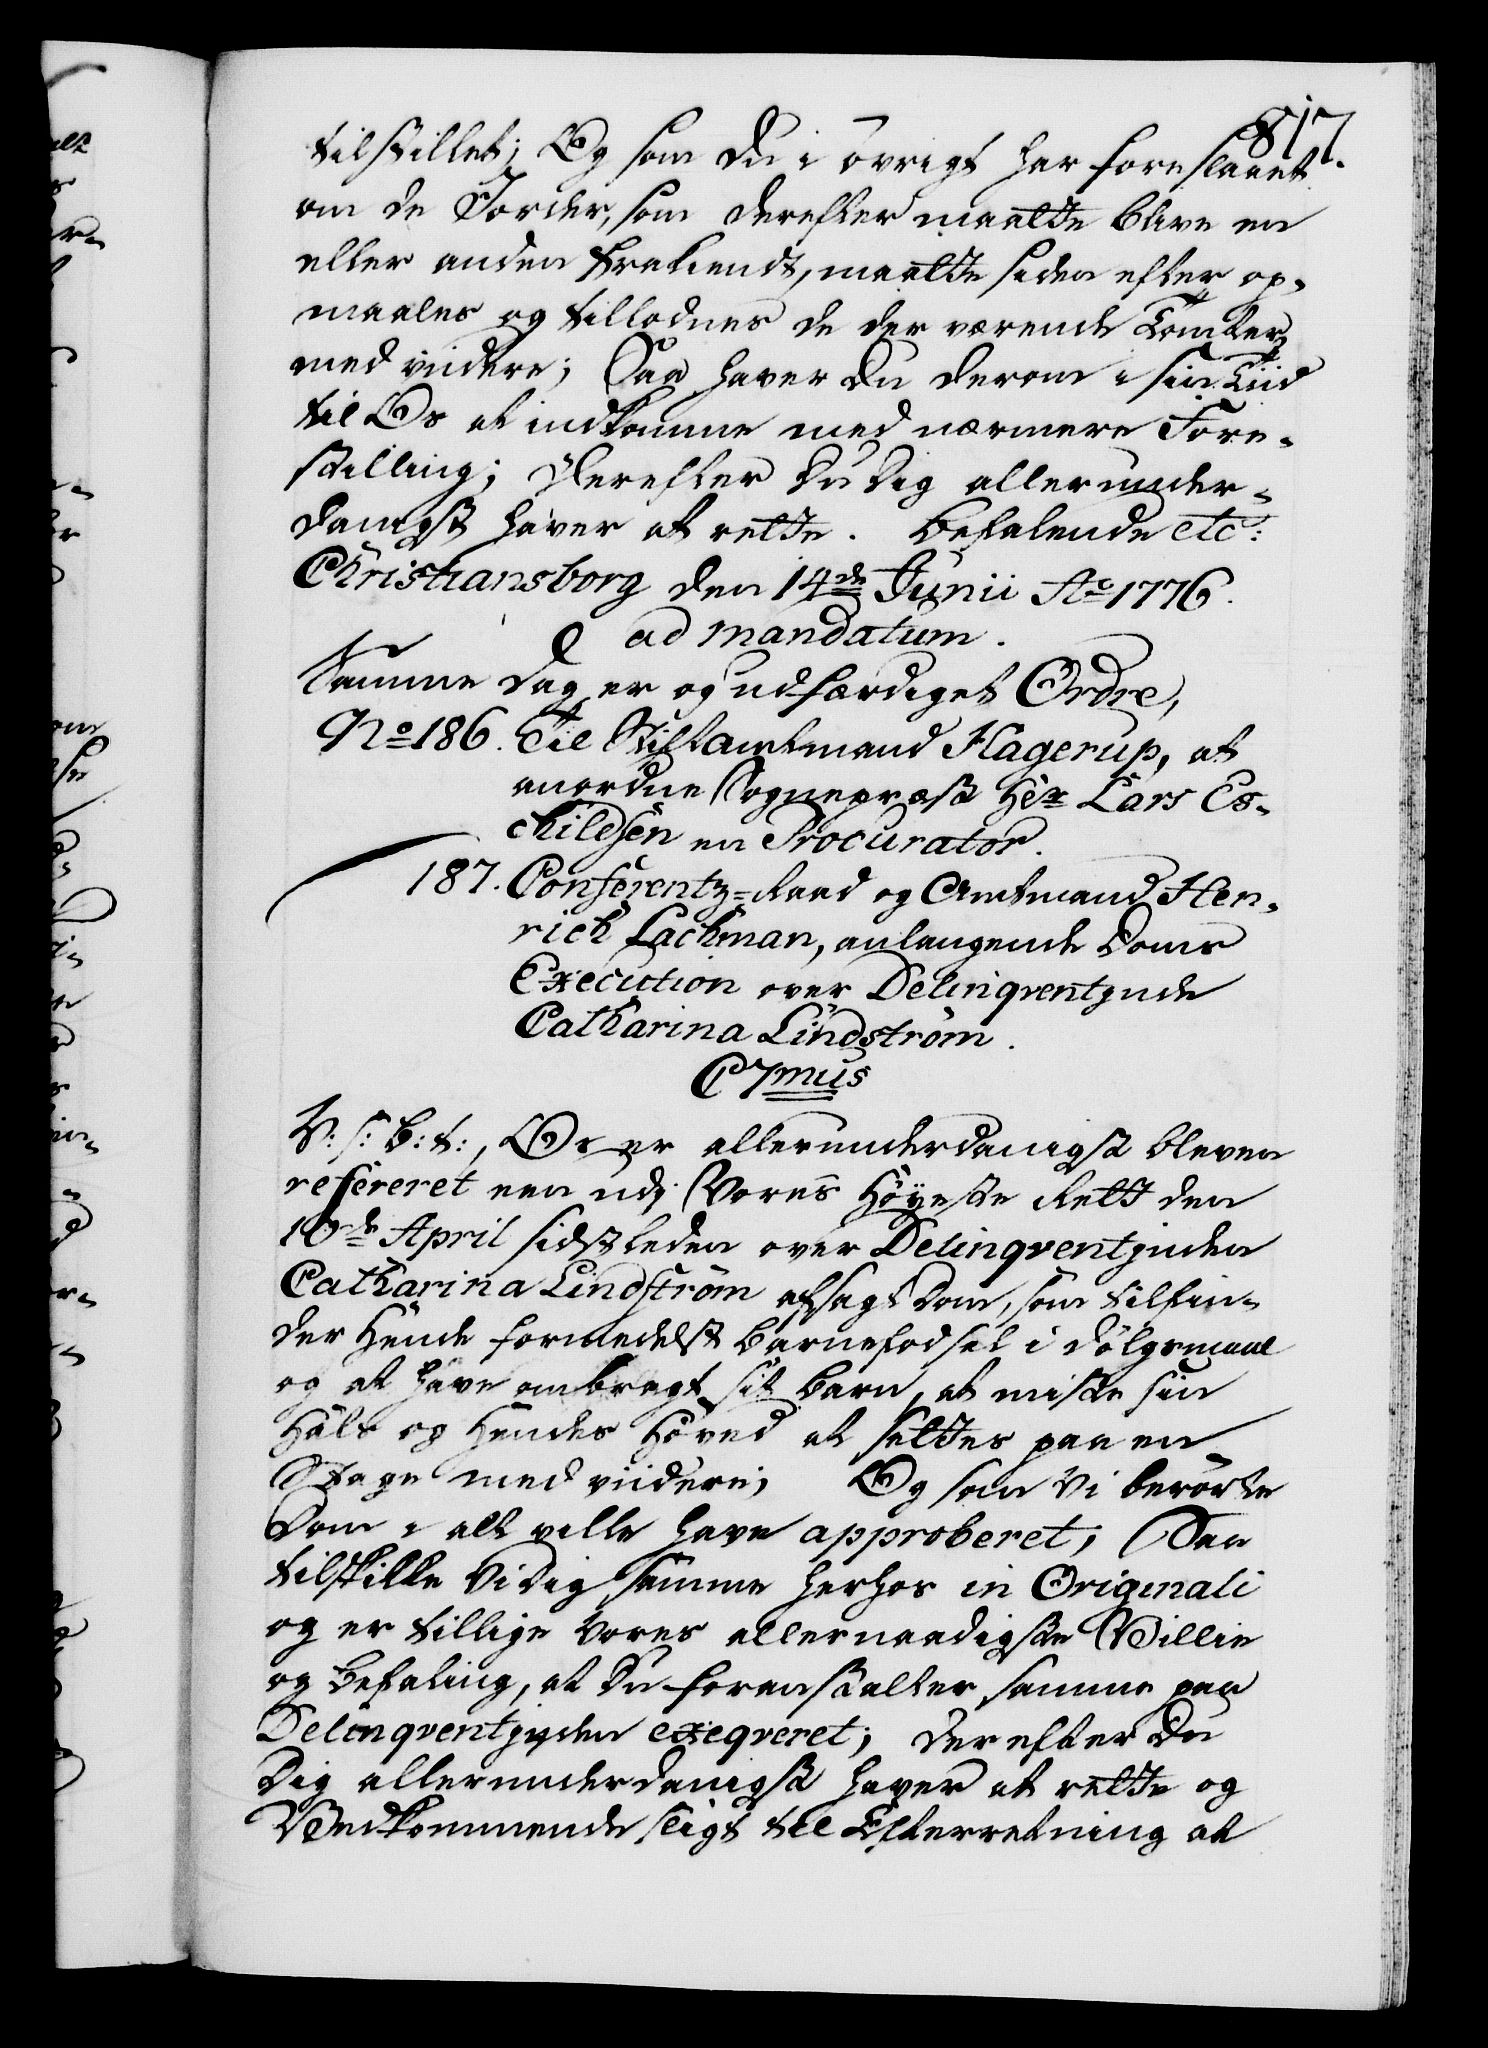 817.
tilstillet; Og som du i øvrigt har foreslaaet
om de Jorder, som derefter maatte blive en
eller anden frakiendt, maatte siden efter op-
maales og tillodnes de der værende Tomter,
med viidere; Saa haver du derom i sin Tiid
til Os at indkomme med nærmere Fore-
stilling; Derefter du dig allerunder-
danigst haver at rette. Befalende etc:
Christiansborg den 14de Junii Ao 1776.
ad mandatum.
Samme dag er og udfærdiget Ordre,
No 186. Til Stiftamtmand Hagerup, at
anordne Sognepræst Hr Lars Es-
childsen en Procurator.
187. Conferentz-Raad og Amtmand Hen-
rich Lachman, anlangende Doms
Execution over Delinqventinde
Catharina Lindstrøm.
C7mus
V: s: b: t:, Os er allerunderdanigst bleven
refereret een udj Vores Høyeste Rett den
10de April sidstleden over Delinqventinden
Catharina Lindstrøm afsagt Dom, som tilfin-
der Hende formedelst Barnefødsel i Dølgsmaal
og at have ombragt sit Barn, at miste sin
Hals og Hendes Hoved at settes paa en
Stage med viidere; Og som Vi berørte
Dom i alt ville have approberet; Saa
tilskikke Vi dig samme herhos in Originali
og er tillige Vores allernaadigste Villie
og Befaling, at du foranstalter samme paa
Delinqventinden exeqveret; Derefter du
dig allerunderdanigst haver at rette og
Vedkommende sligt til Efterretning at